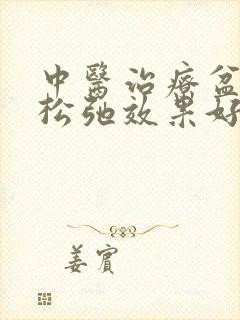 中醫治療盆
松弛效果好
姜賓